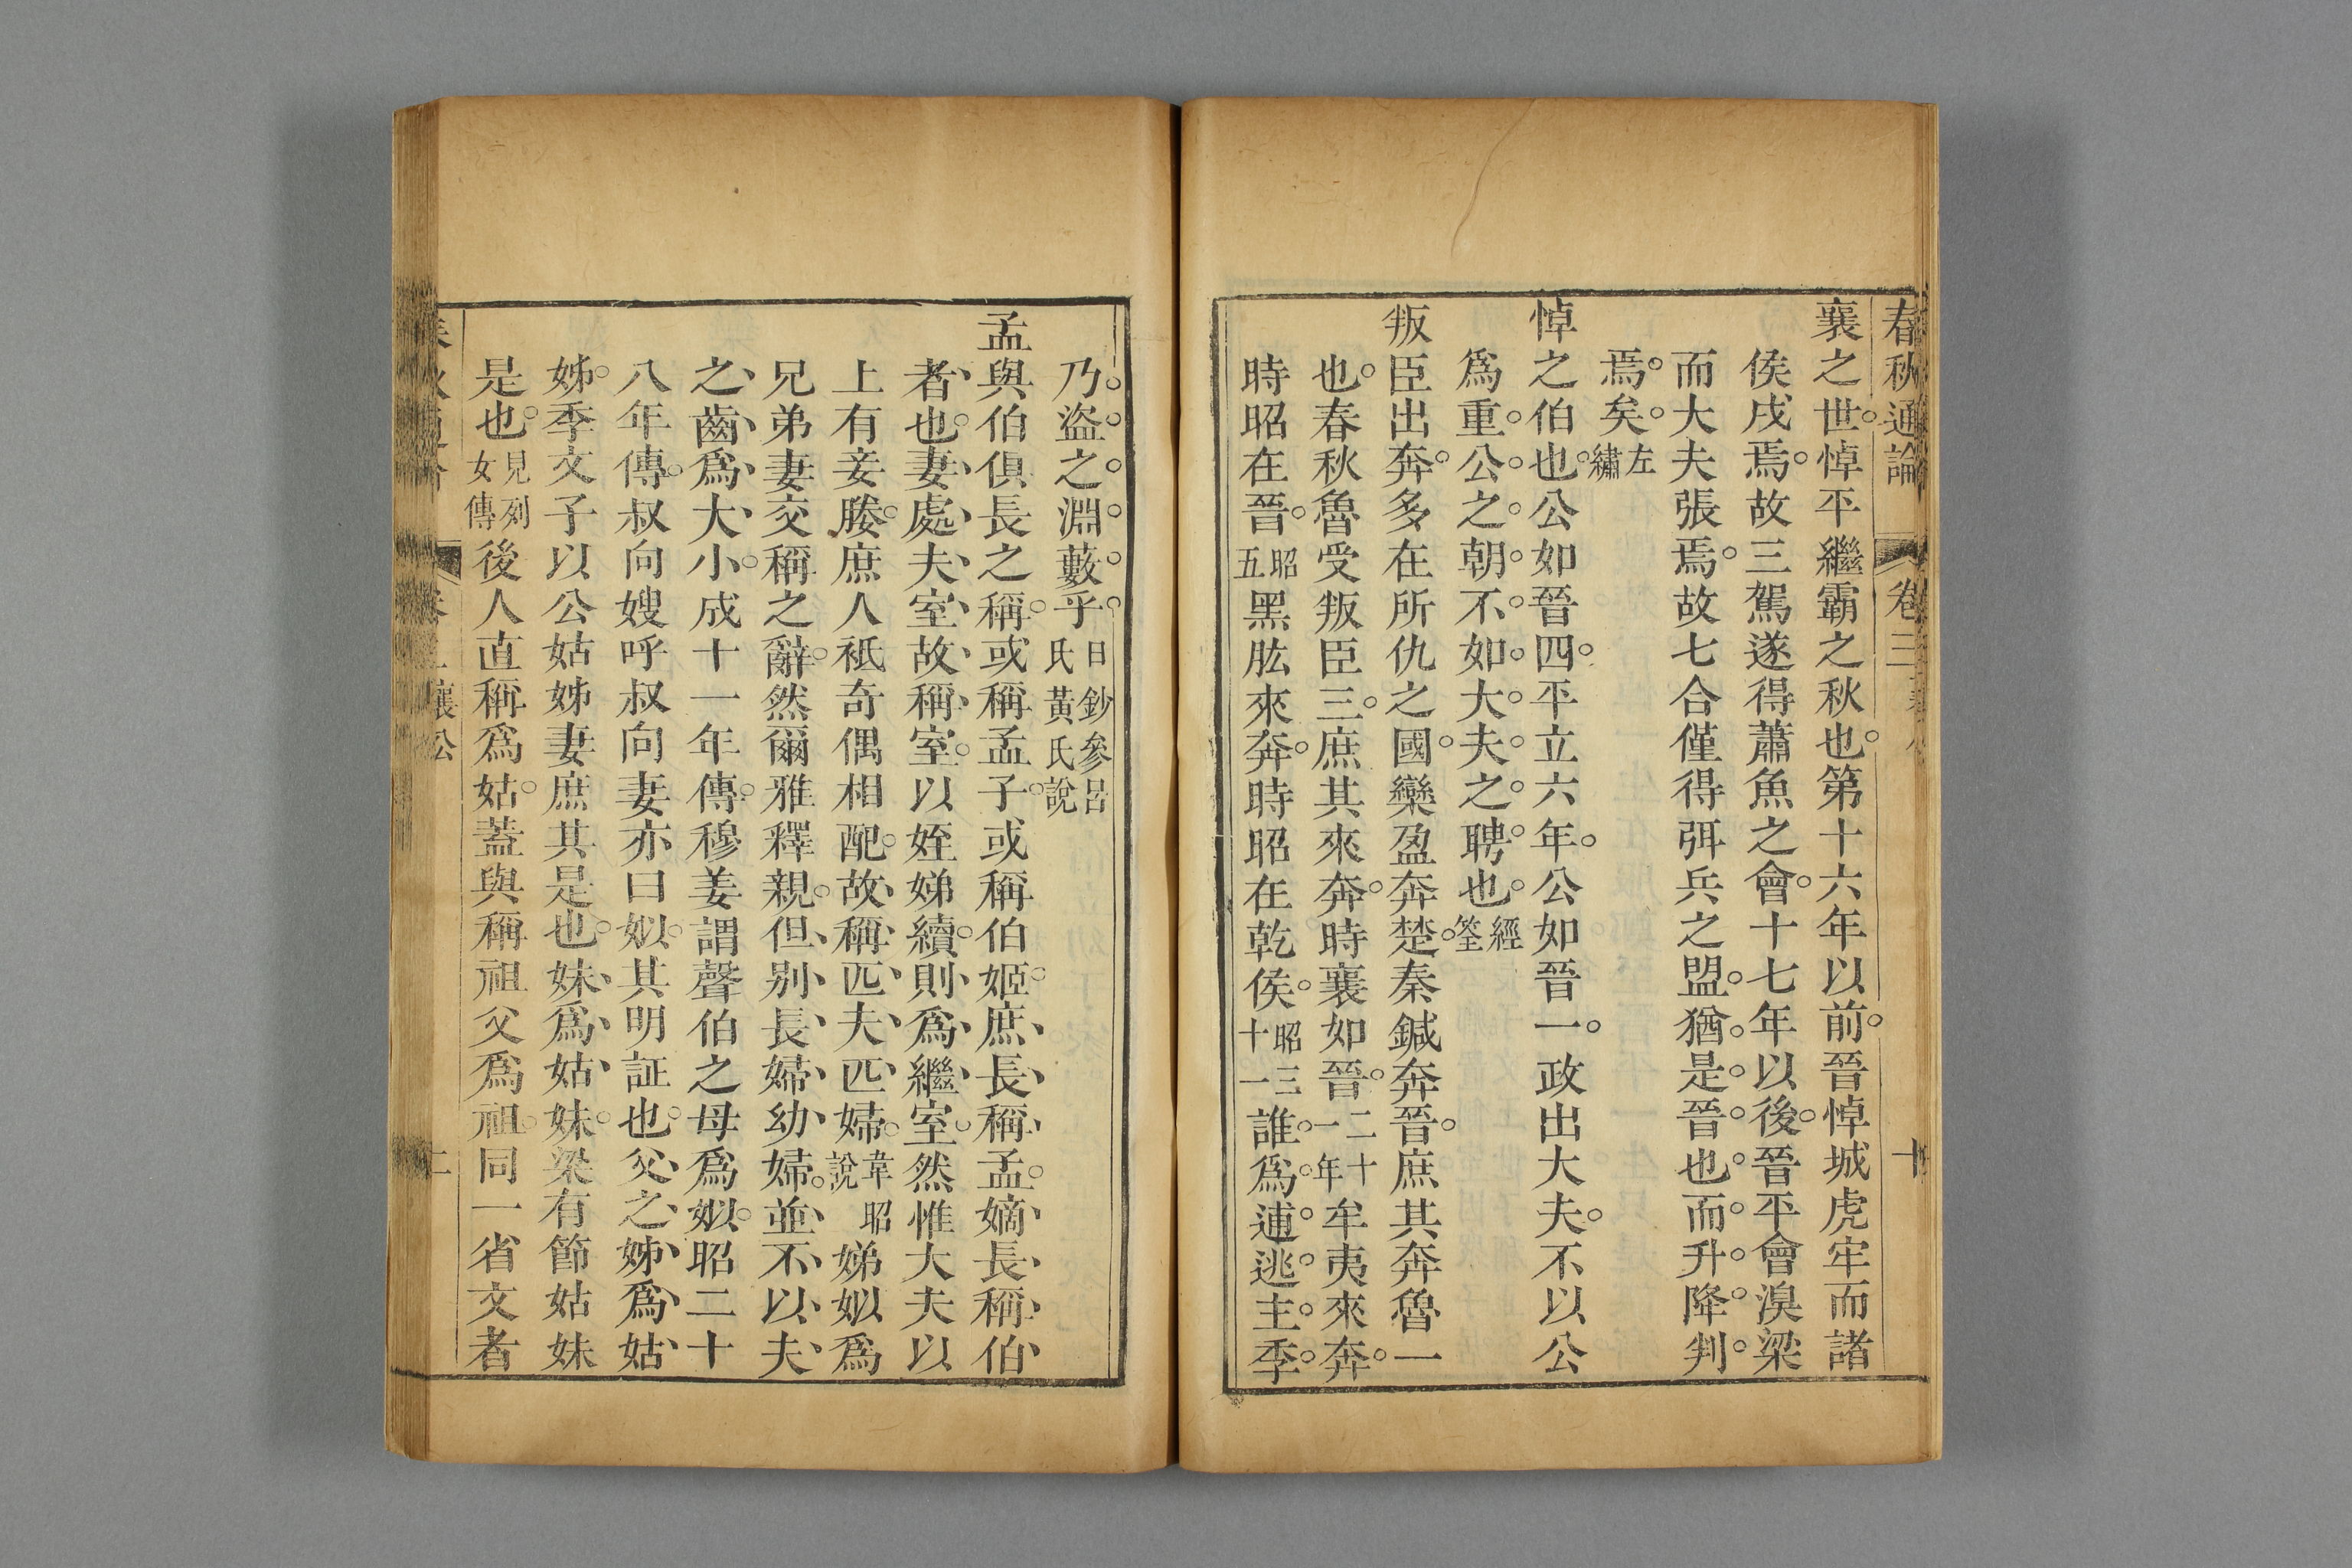 春秋通論 卷三 十
襄之世悼平繼霸之秋也第十六年以前晉悼城虎牢而諸
侯戌焉故三駕遂得蕭魚之會十七年以後晉平會湨梁
而大夫張焉故七合僅得弭兵之盟猶是晉也而升降判
焉矣左繡
悼之伯也公如晉四平立六年公如晉一政出大夫不以公
爲重公之朝不如大夫之聘也經筌
叛臣出奔多在所仇之國欒盈奔楚秦鍼奔晉庶其奔魯一
也春秋魯受叛臣三庶其來奔時襄如晉二十一年牟夷來奔
時昭在晉昭五黑肱來奔時昭在乾侯昭三十一誰爲逋逃主季
乃盜之淵藪乎日鈔參呂氏黃氏說
孟與伯俱長之稱或稱孟子或稱伯姬庶長稱孟嫡長稱伯
者也妻處夫室故稱室以姪娣續則爲繼室然惟大夫以
上有妾媵庶人祗奇偶相配故稱匹夫匹婦韋昭說娣姒爲
兄弟妻交稱之辭然爾雅釋親但别長婦幼婦並不以夫
之齒爲大小成十一年傳穆姜謂聲伯之母爲姒昭二十
八年傳叔向嫂呼叔向妻亦曰姒其明証也父之姊爲姑
姊季文子以公姑姊妻庶其是也妹爲姑妹梁有節姑妹
是也見列女傳後人直稱爲姑蓋與稱祖父爲祖同一省文者
襄公